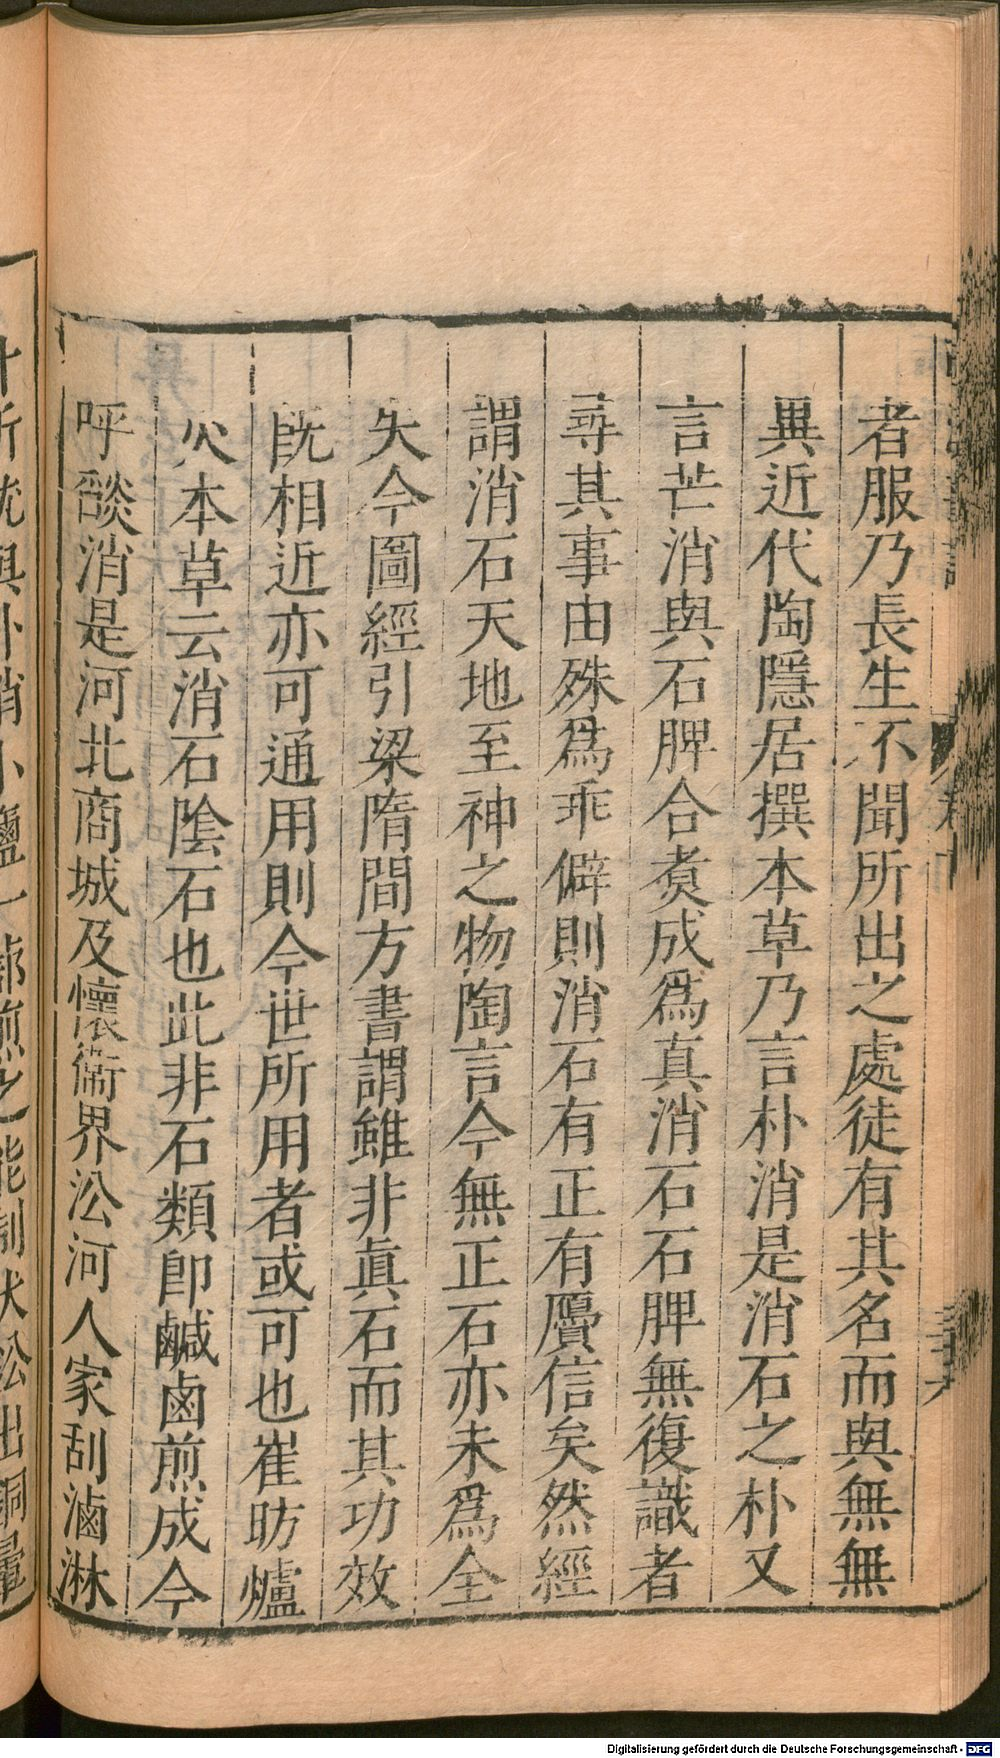 者服乃長生不聞所出之處徒有其名而與無無
異近代陶隱居撰本草乃言朴消是消石之朴又
言芒消與石脾合煑成爲真消石石脾無復識者
尋其事由殊爲乖僻則消石有正有贗信矣然經
謂消石天地至神之物陶言今無正石亦未爲全
失今圖經引梁隋間方書謂雖非眞石而其功效
旣相近亦可通用則今世所用者或可也崔昉爐
火本草云消石陰石也此非石類卽鹹鹵煎成今
呼燄消是河北商城及懷衞界沿河人家刮滷淋
Digitalisierung gefördert durch die Deutsche Forschungsgemeinschaft - DFG